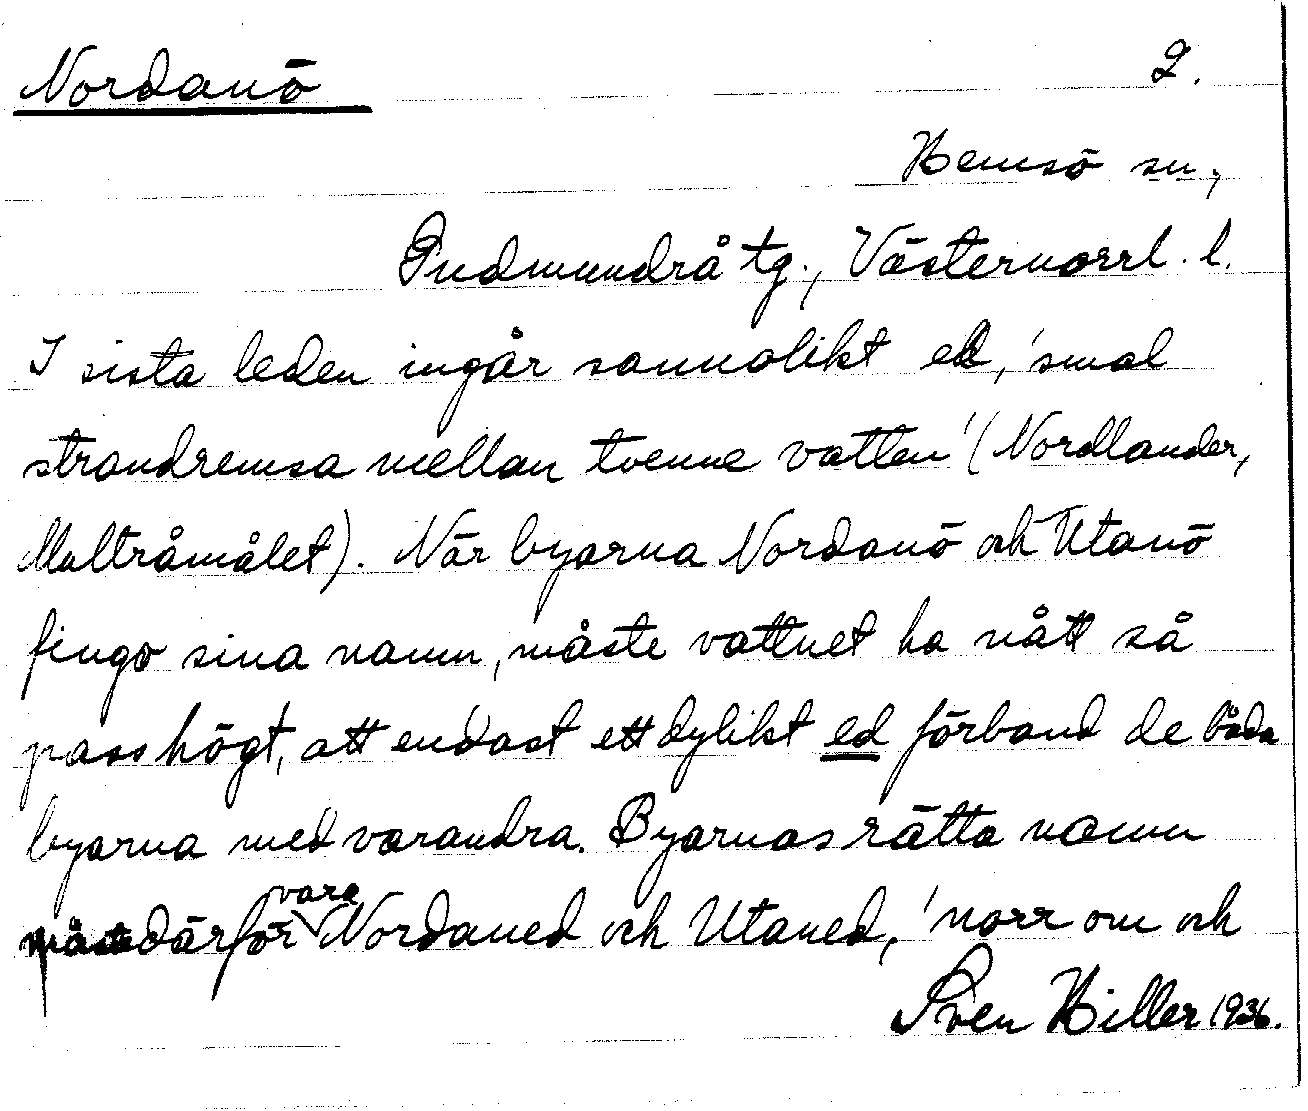 Nordanö 2.
Hemsö sn,
Gudmundrå tg., Västernorrl. l.
I sista leden ingår sannolikt ed, 'smal
strandremsa mellan tvenne vatten' (Nordlander,
Multråmålet). När byarna Nordanö och Utanö
fingo sina namn, måste vattnet ha nått så
pass högt, att endast ett dylikt ed förband de båda
byarna med varandra. Byarnas rätta namn
måste därför vara Nordaned och Utaned, 'norr om och
Sven Hiller 1936.